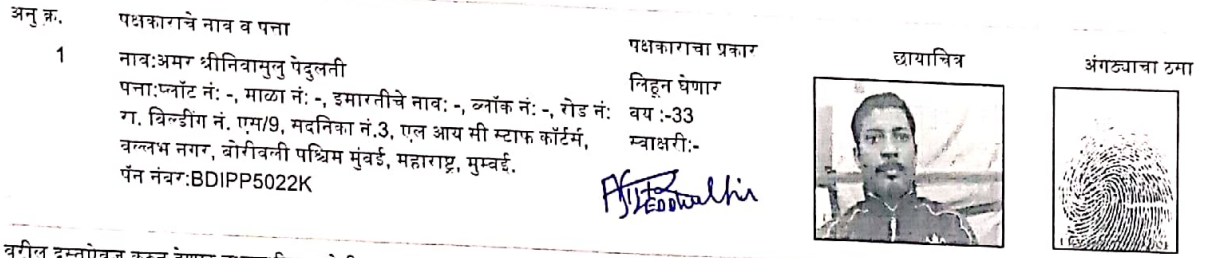 अनु क्र. पक्षकाराचे नाव व पत्ता पक्षकाराचा प्रकार छायाचित्र अंगठ्याचा ठसा
1 नाव:अमर श्रीनिवासुलु पेदुलती लिहून घेणार
पत्ता:प्लॉट नं: -, माळा नं: -, इमारतीचे नाव: -, ब्लॉक नं: -, रोड नं: वय :-33
रा. बिल्डींग नं. एम/9, सदनिका नं.3, एल आय सी स्टाफ कॉर्टर्स, स्वाक्षरी:-
वल्लभ नगर, बोरीवली पश्चिम मुंबई, महाराष्ट्र, मुम्बई.
पॅन नंबर:BDIPP5022K
वरील दस्तऐवज करुन देणार